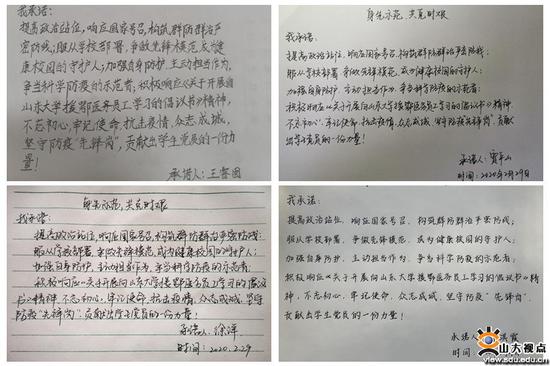 我承诺:
提高政治站位,响应国家号召,构筑群防群治严
密防线;服从学校部署,争做先锋模范,成为健
康校园的守护人;加强自身防护,主动担当作为,
争当科学防疫的示范者;积极响应《关于开展向
山东大学援鄂医务员工学习的倡议书》精神,
不忘初心,牢记使命,抗击疫情,众志成城,
坚守防疫“先锋岗”,贡献出学生党员的一份力
量!
承诺人:王
身先示范,共克时艰
我承诺:
提高政治站位,响应国家号召,构筑群防群治严密防线;
服从学校部署,争做先锋模范,成为健康校园的守护人;
加强自身防护,主动担当作为,争当科学防疫的示范者;
积极响应《关于开展向山东大学援鄂医务员工学习的倡议书》精神,
不忘初心,牢记使命,抗击疫情,众志成城,坚守防疫先锋岗,贡献
出学生党员的一份力量!
承诺人:
时间:2020年2月29日
身先示范,共克时艰
我承诺:
提高政治站位,响应国家号召,构筑群防群治严密防线;
服从学校部署,争做先锋模范,成为健康校园的守护人;
加强自身防护,主动担当作为,争当科学防疫的示范者;
积极响应《关于开展向山东大学援鄂医务员工学习的倡议
书》精神,不忘初心,牢记使命,抗击疫情,众志成城,坚守
防疫“先锋岗”,贡献出学生党员的一份力量!
承诺人:徐洋
时间:2020.2.29
我承诺:
提高政治站位,响应国家号召,构筑群防群治严密防线;
服从学校部署,争做先锋模范,成为健康校园的守护人;
加强自身防护,主动担当作为,争当科学防疫的示范者;
积极响应《关于开展向山东大学援鄂医务员工学习的倡议书》精
神,不忘初心,牢记使命,众志成城,坚守防疫“先锋岗”,
贡献出学生党员的一份力量!
承诺人
时间:
山大视点
www.view.sdu.edu.cn